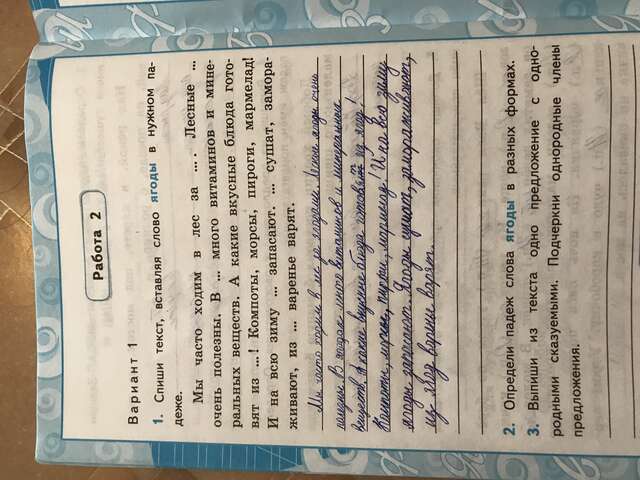 Работа 2
Вариант 1
1. Спиши текст, вставляя слово ягоды в нужном па-
деже.
Мы часто ходим в лес за ... . Лесные ...
очень полезны. В ... много витаминов и мине-
ральных веществ. А какие вкусные блюда гото-
вят из ...! Компоты, морсы, пироги, мармелад!
И на всю зиму ... запасают. ... сушат, замора-
живают, из ... варенье варят.
Мы часто ходим в лес за ягодами. Лесные ягоды очень
полезны. В ягодах много витаминов и минеральных
веществ. А какие вкусные блюда готовят из ягод!
Компоты, морсы, пироги, мармелад! И на всю зиму
ягоды запасают. Ягоды сушат, замораживают,
из ягод варенье варят.
2. Определи падеж слова ягоды в разных формах.
3. Выпиши из текста одно предложение с одно-
родными сказуемыми. Подчеркни однородные члены
предложения.